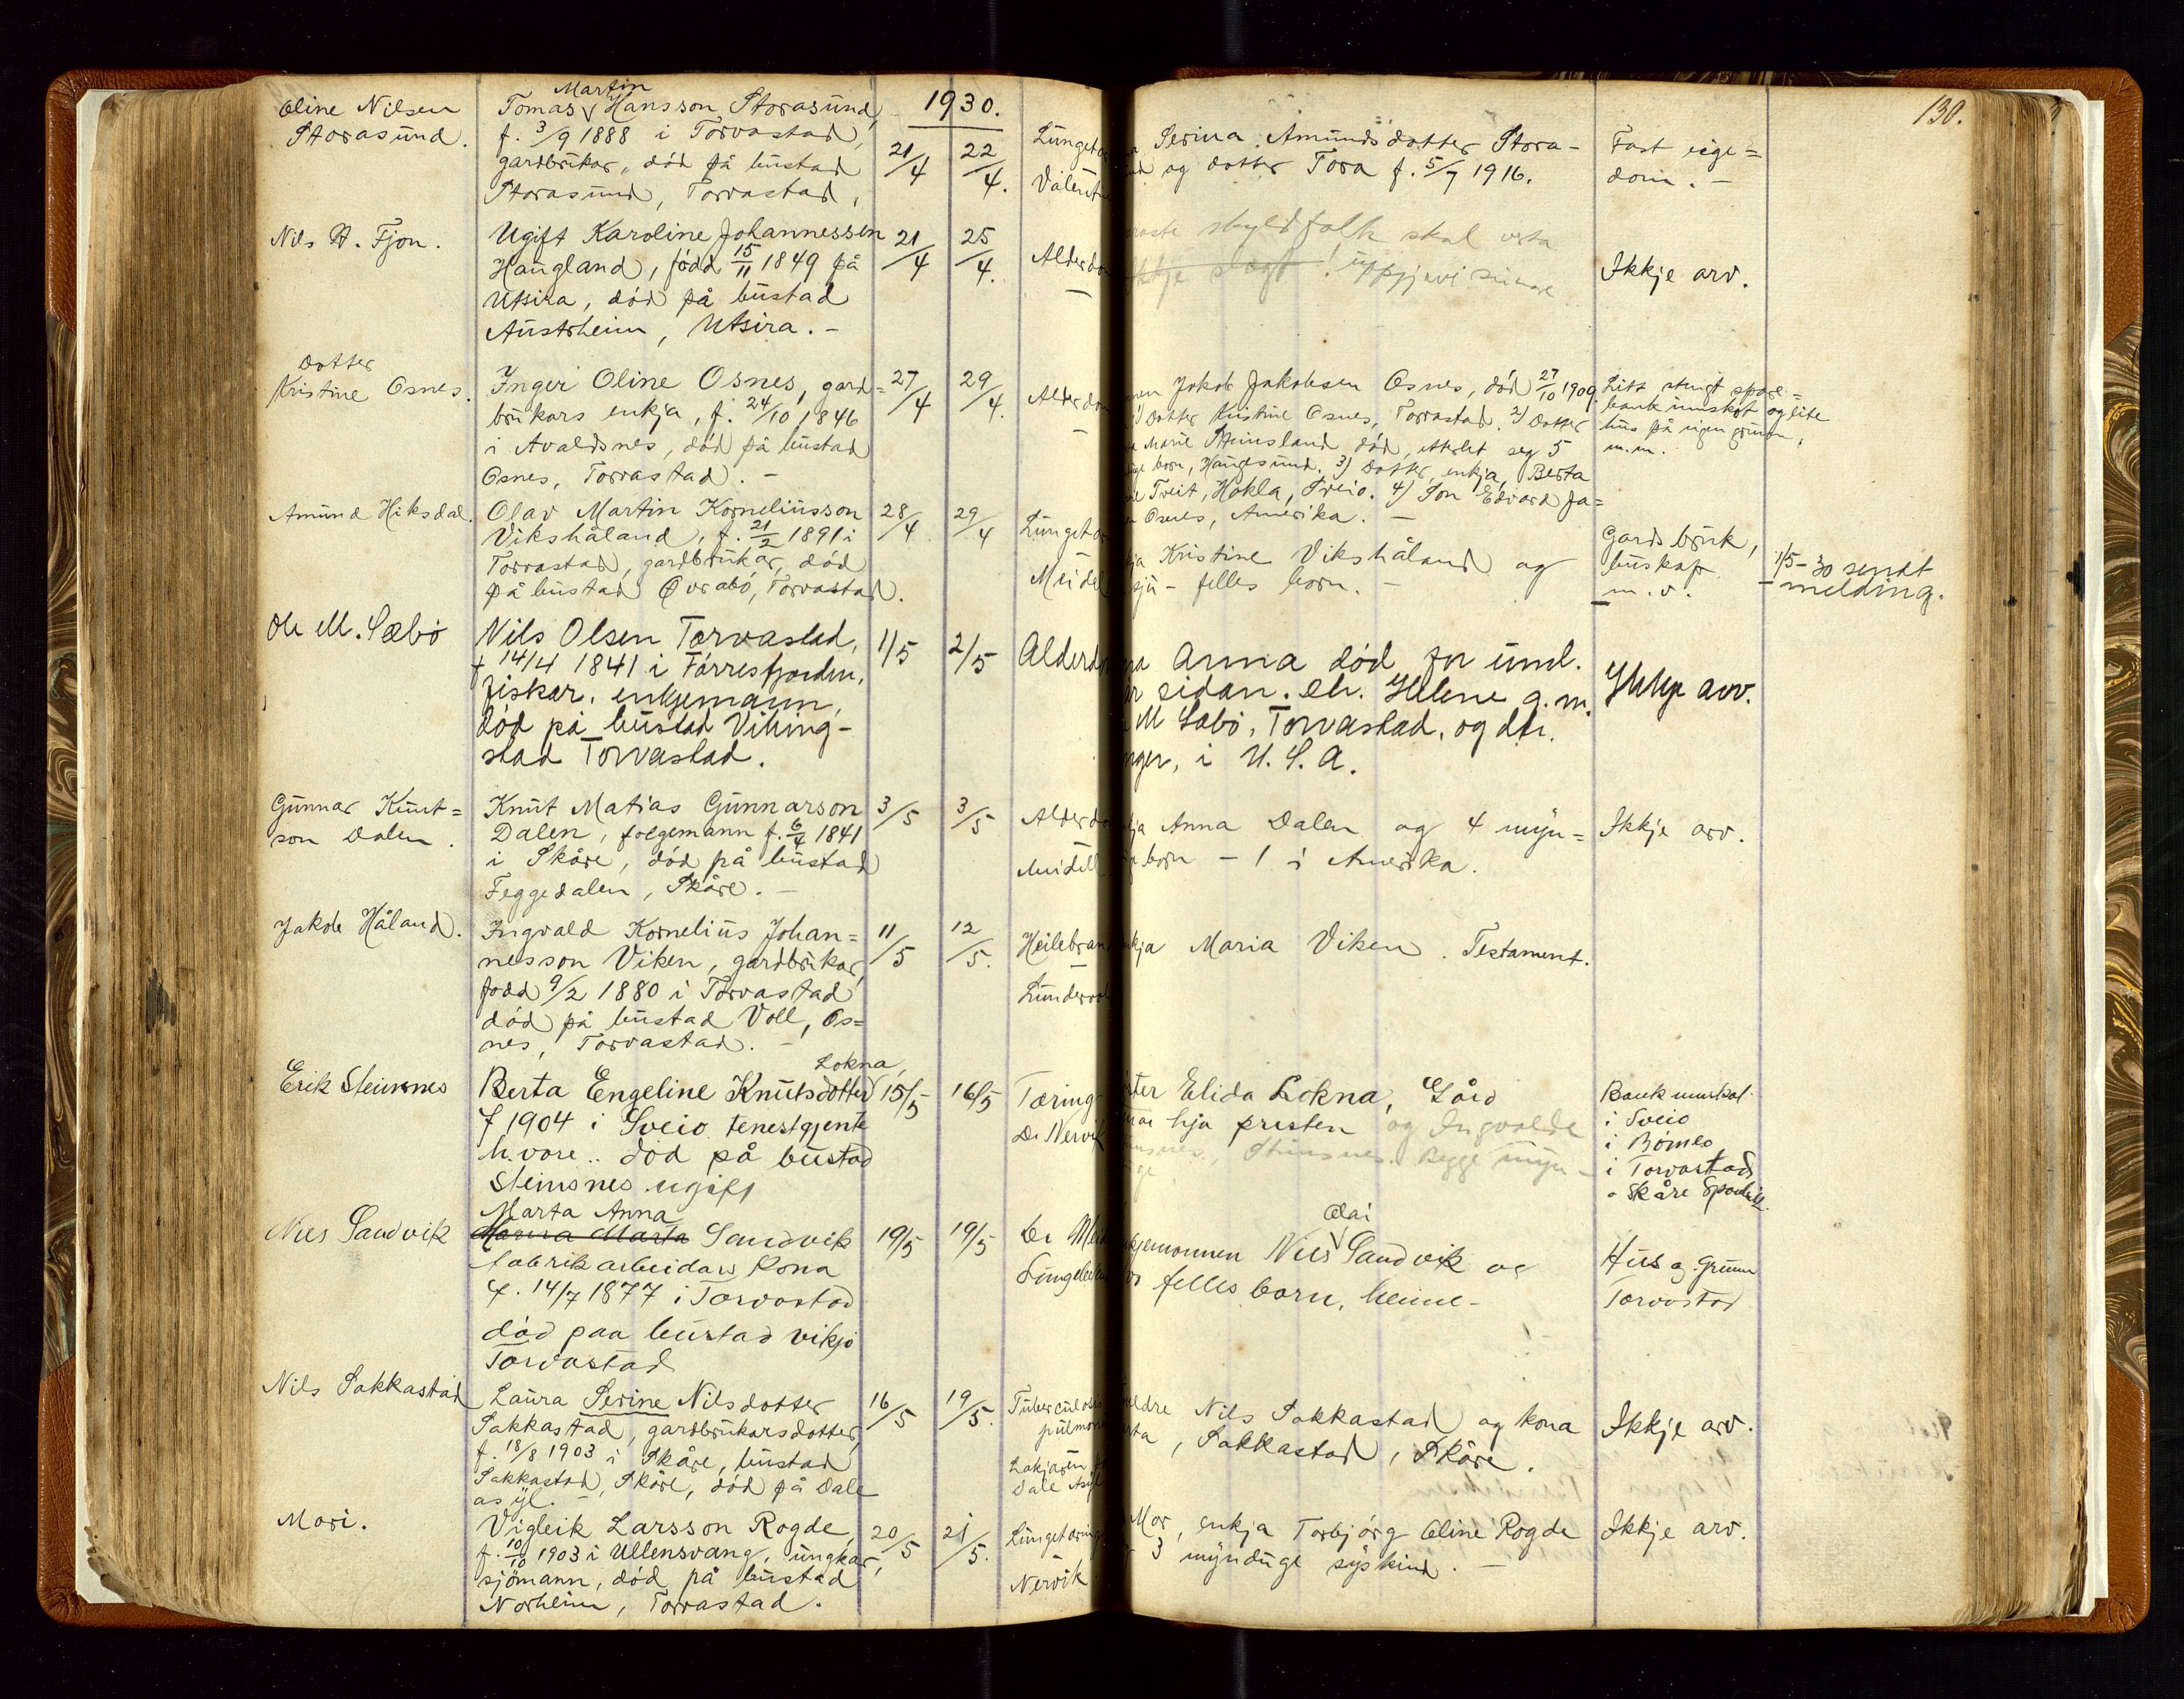 130.
1930.
Oline Nilsen
Storasund.
Martin
Tomas Hansson Storasund,
f. 3/9 1888 i Torvastad,
gardbrukar, død på bustad
Storasund, Torvastad,
21/4
22/4.
Serina Amundsdotter Stora-
og dotter Tora f. 5/7 1916.
Fast eige=
dom. -
Nils H. Fjon.
Ugift Karoline Johannessen
Haugland, fødd 15/11 1849 på
Utsira, død på bustad
Austrheim, Utsira. -
21/4
25/4.
skyldfolk skal verta
uppgjevi sinare
Ikkje arv.
Dotter
Kristine Osnes.
Inger Oline Osnes, gard=
brukars enkja, f. 24/10 1846
i Avaldsnes, død på bustad
Osnes, Torvastad. -
27/4
29/4.
Jakob Jakobsen Osnes, død 27/10 1909.
1) Dotter Kristine Osnes, Torvastad. 2) Dotter
Marie Steinsland død, etterlet seg 5
born, Haugesund. 3) Dotter, enkja, Berta
Treit, Hokla, Sveio. 4) Son Edvard Ja=
Osnes, Amerika. -
Litt stengt spare=
bank innskot og lite
hus på eigen grunn,
m.m.
Amund Hiksdal.
Olav Martin Korneliusson
Vikshåland, f. 21/2 1891 i
Torvastad, gardbrukar, død
på bustad Øvrabø, Torvastad.
28/4
29/4
Kristine Vikshåland og
sju - felles born. -
Gardsbruk,
buskap
m.v.
1/5-30 sendt
melding.
Ole M. Sæbø
Nils Olsen Torvastad,
f 14/4 1841 i Førresfjorden,
fiskar, enkjemann,
død på bustad Viking-
stad Torvastad.
1/5
2/5
Anna død for uml.
sidan. Helene g.m.
M Sæbø, Torvastad, og dtr.
i U.S.A.
Ikkje arv.
Gunnar Knut=
son Dalen.
Knut Matias Gunnarson
Dalen, folgemann f. 6/4 1841
i Skåre, død på bustad
Feggedalen, Skåre. -
3/5
3/5
Anna Dalen og 4 myn=
born - 1 i Amerika.
Ikkje arv.
Jakob Håland.
Ingvald Kornelius Johan=
nesson Viken, gardbrukar,
fødd 9/2 1880 i Torvastad
død på bustad Voll, Os=
nes, Torvastad. -
11/5
12/5.
Maria Viken. Testament.
Erik Steinsnes
Lokna,
Berta Engeline Knutsdotter
f 1904 i Sveio tenestgjente
h.vore.. død på bustad
Steinsnes ugift
15/5
16/5
Tæring
Dr Nervik
Elida Lokna, Gård
hja presten og Ingvalde
Steinsnes. Begge myn-
Bank innskot
i Sveio
i Bømlo
i Torvastad
Nils Sandvik
Marta Anna
Sandvik
fabrikarbeidars Kona
f. 14/7 1877 i Torvastad
død paa bustad vikjo
Torvastad
19/5
19/5
Olai
Nils Sandvik og
felles born, heime-
Hus og grunn
Torvastad
Nils Sakkastad
Laura Serine Nilsdotter
Sakkastad, gardbrukarsdotter,
f. 18/8 1903 i Skåre, bustad
Sakkastad, Skåre, død på Dale
asyl. -
16/5
19/5.
Nils Sakkastad og kona
Sakkastad, Skåre.
Ikkje arv.
Mori.
Vigleik Larsson Rogde,
f. 10/10 1903 i Ullensvang, ungkar,
sjømann, død på bustad
Norheim, Torvastad.
20/5
21/5.
Nervik
Mor, enkja Torbjørg Oline Rogde
3 myndige syskin. -
Ikkje arv.